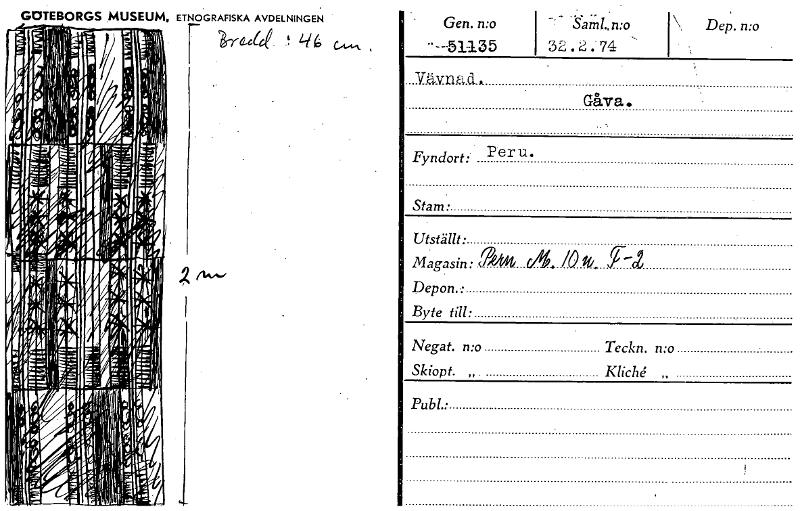 GÖTEBORGS MUSEUM, ETNOGRAFISKA AVDELNINGEN
Bredd : 46 cm.
2 m
Gen. n:o Saml. n:o Dep. n:o
51135 32.2.74
Vävnad.
Gåva.
Fyndort: Peru.
Stam:
Utställt:
Magasin: Peru M. 10 u. F-2
Depon.:
Byte till:
Negat. n:o Teckn. n:o
Skiopt. „ Kliché „
Publ.: